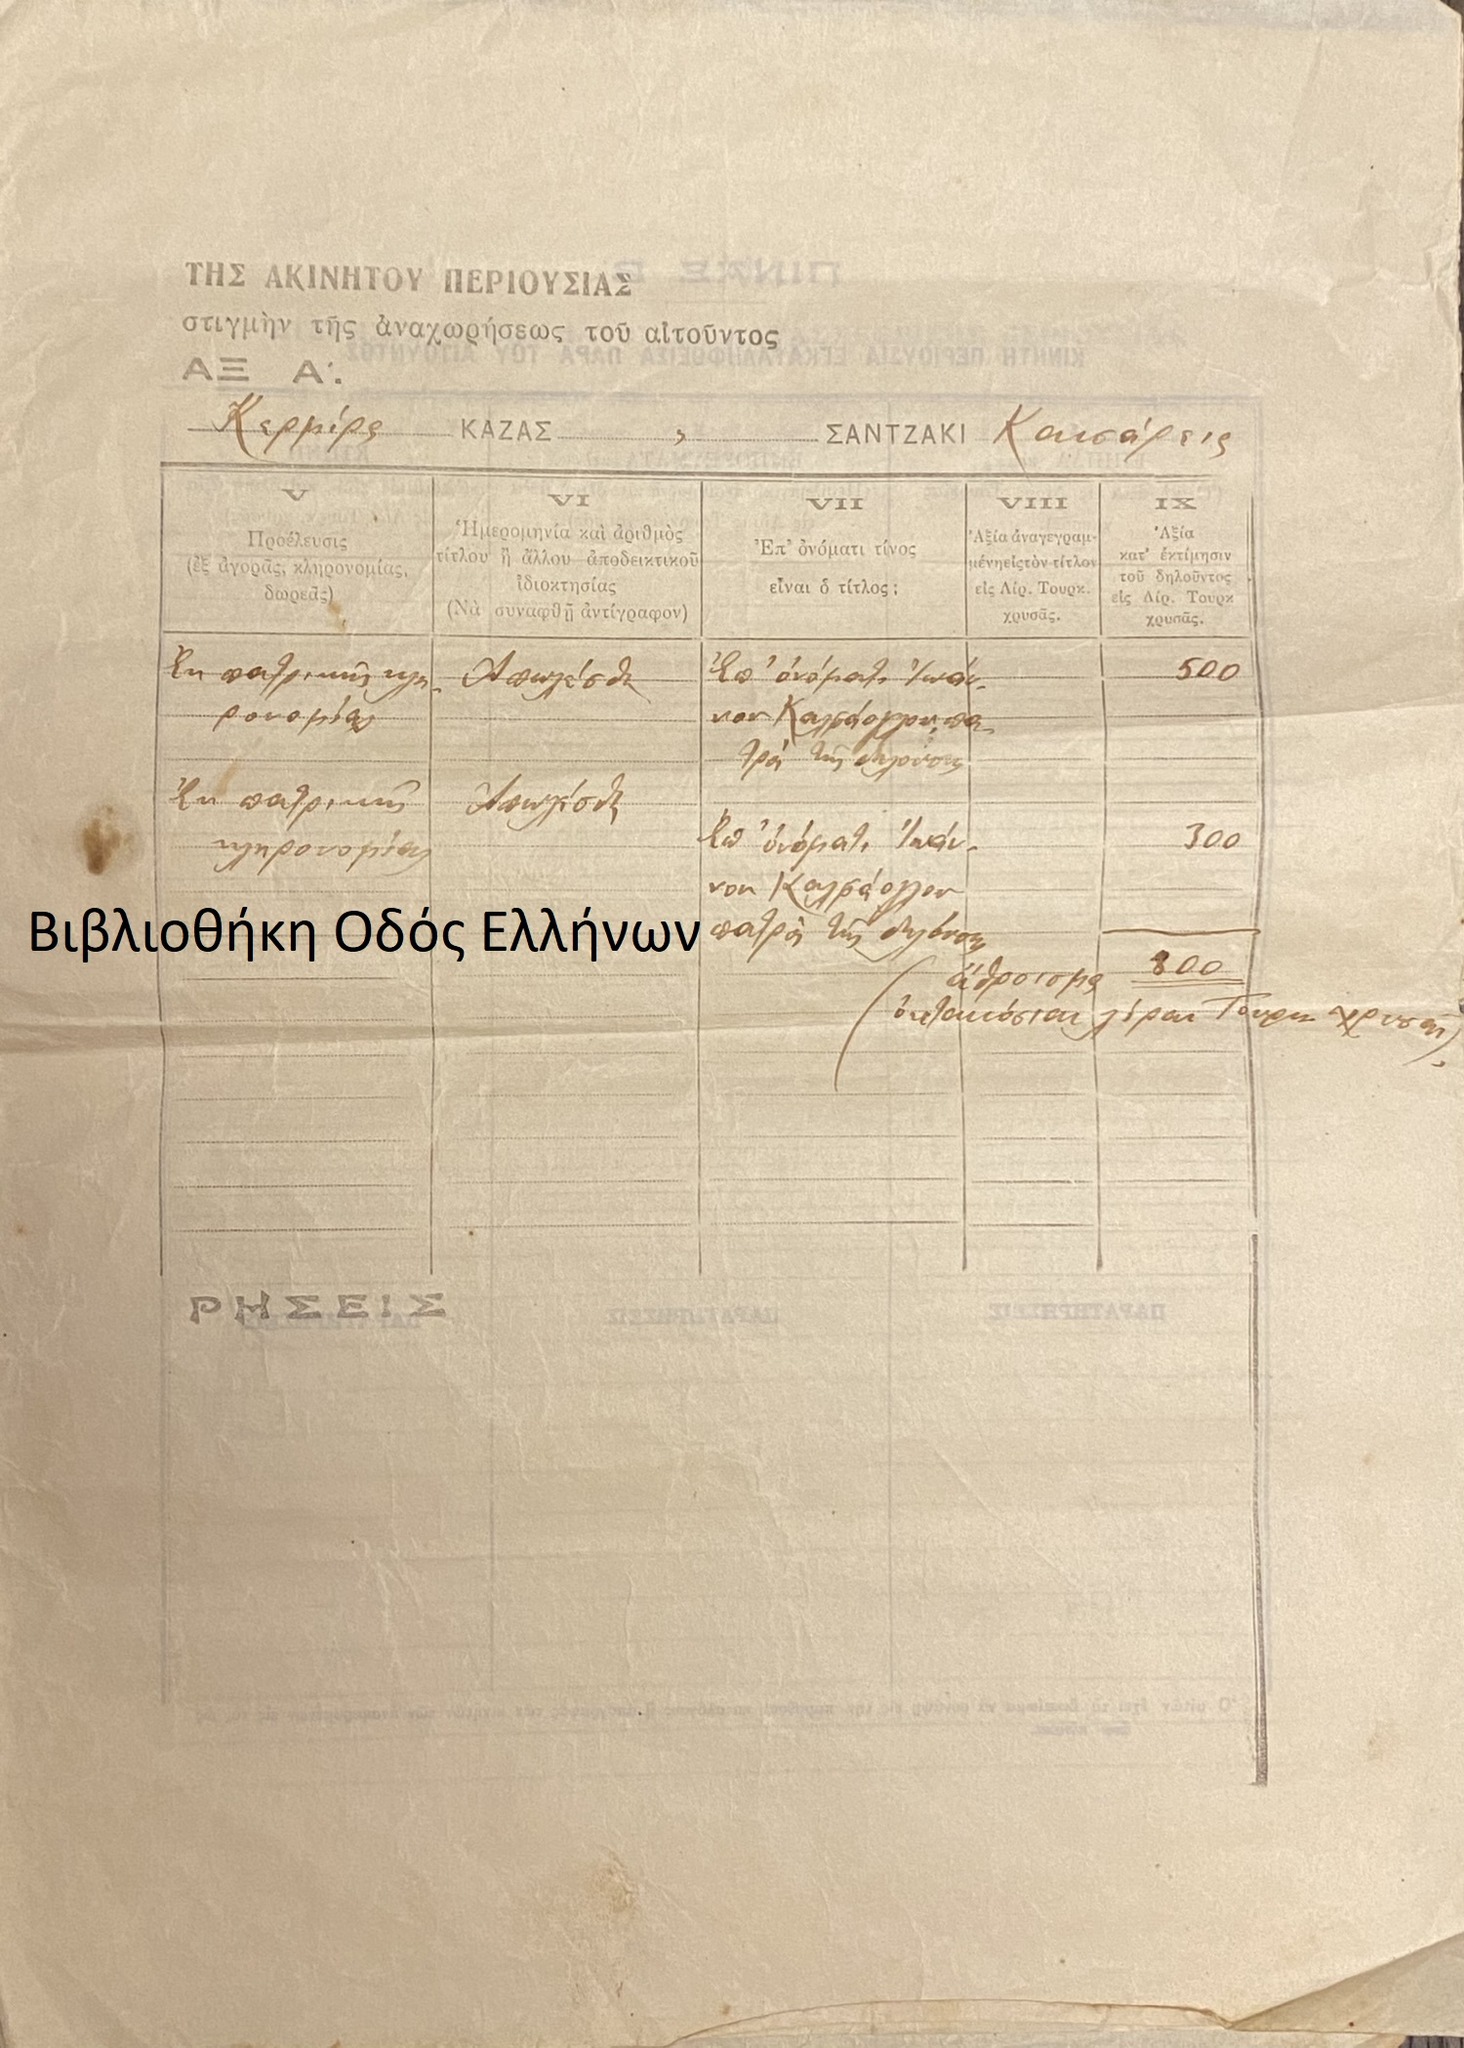 ΤΗΣ ΑΚΙΝΗΤΟΥ ΠΕΡΙΟΥΣΙΑΣ
στιγμὴν τῆς ἀναχωρήσεως τοῦ αἰτοῦντος
ΑΞ Α΄.
Κερμίρα ΚΑΖΑΣ , ΣΑΝΤΖΑΚΙ Καισάρεια
V
Προέλευσις
(ἐξ ἀγορᾶς, κληρονομίας,
δωρεᾶς)
VI
Ἡμερομηνία καὶ ἀριθμὸς
τίτλου ἢ ἄλλου ἀποδεικτικοῦ
ἰδιοκτησίας
(Νὰ συναφθῇ ἀντίγραφον)
VII
Ἐπ' ὀνόματι τίνος
εἶναι ὁ τίτλος;
VIII
Ἀξία ἀναγεγραμ-
μένη εἰς τὸν τίτλον
εἰς Λίρ. Τουρκ.
χρυσᾶς.
IX
Ἀξία
κατ' ἐκτίμησιν
τοῦ δηλοῦντος
εἰς Λίρ. Τουρκ
χρυσᾶς.
Ἐκ πατρικῆς κλη-
ρονομίας
Ἀπωλέσθη
Ἐπ' ὀνόματι Ἰωάν-
νου πα-
τρὸς τῆς δηλούσης
500
Ἐκ πατρικῆς
κληρονομίας
Ἀπωλέσθη
Ἐπ' ὀνόματι Ἰωάν-
νου
πατρὸς τῆς δηλούσης
300
ἄθροισμα 800
(ὀκτακόσιαι λίραι Τουρκ. χρυσαῖ)
Βιβλιοθήκη Οδός Ελλήνων
ΡΗΣΕΙΣ